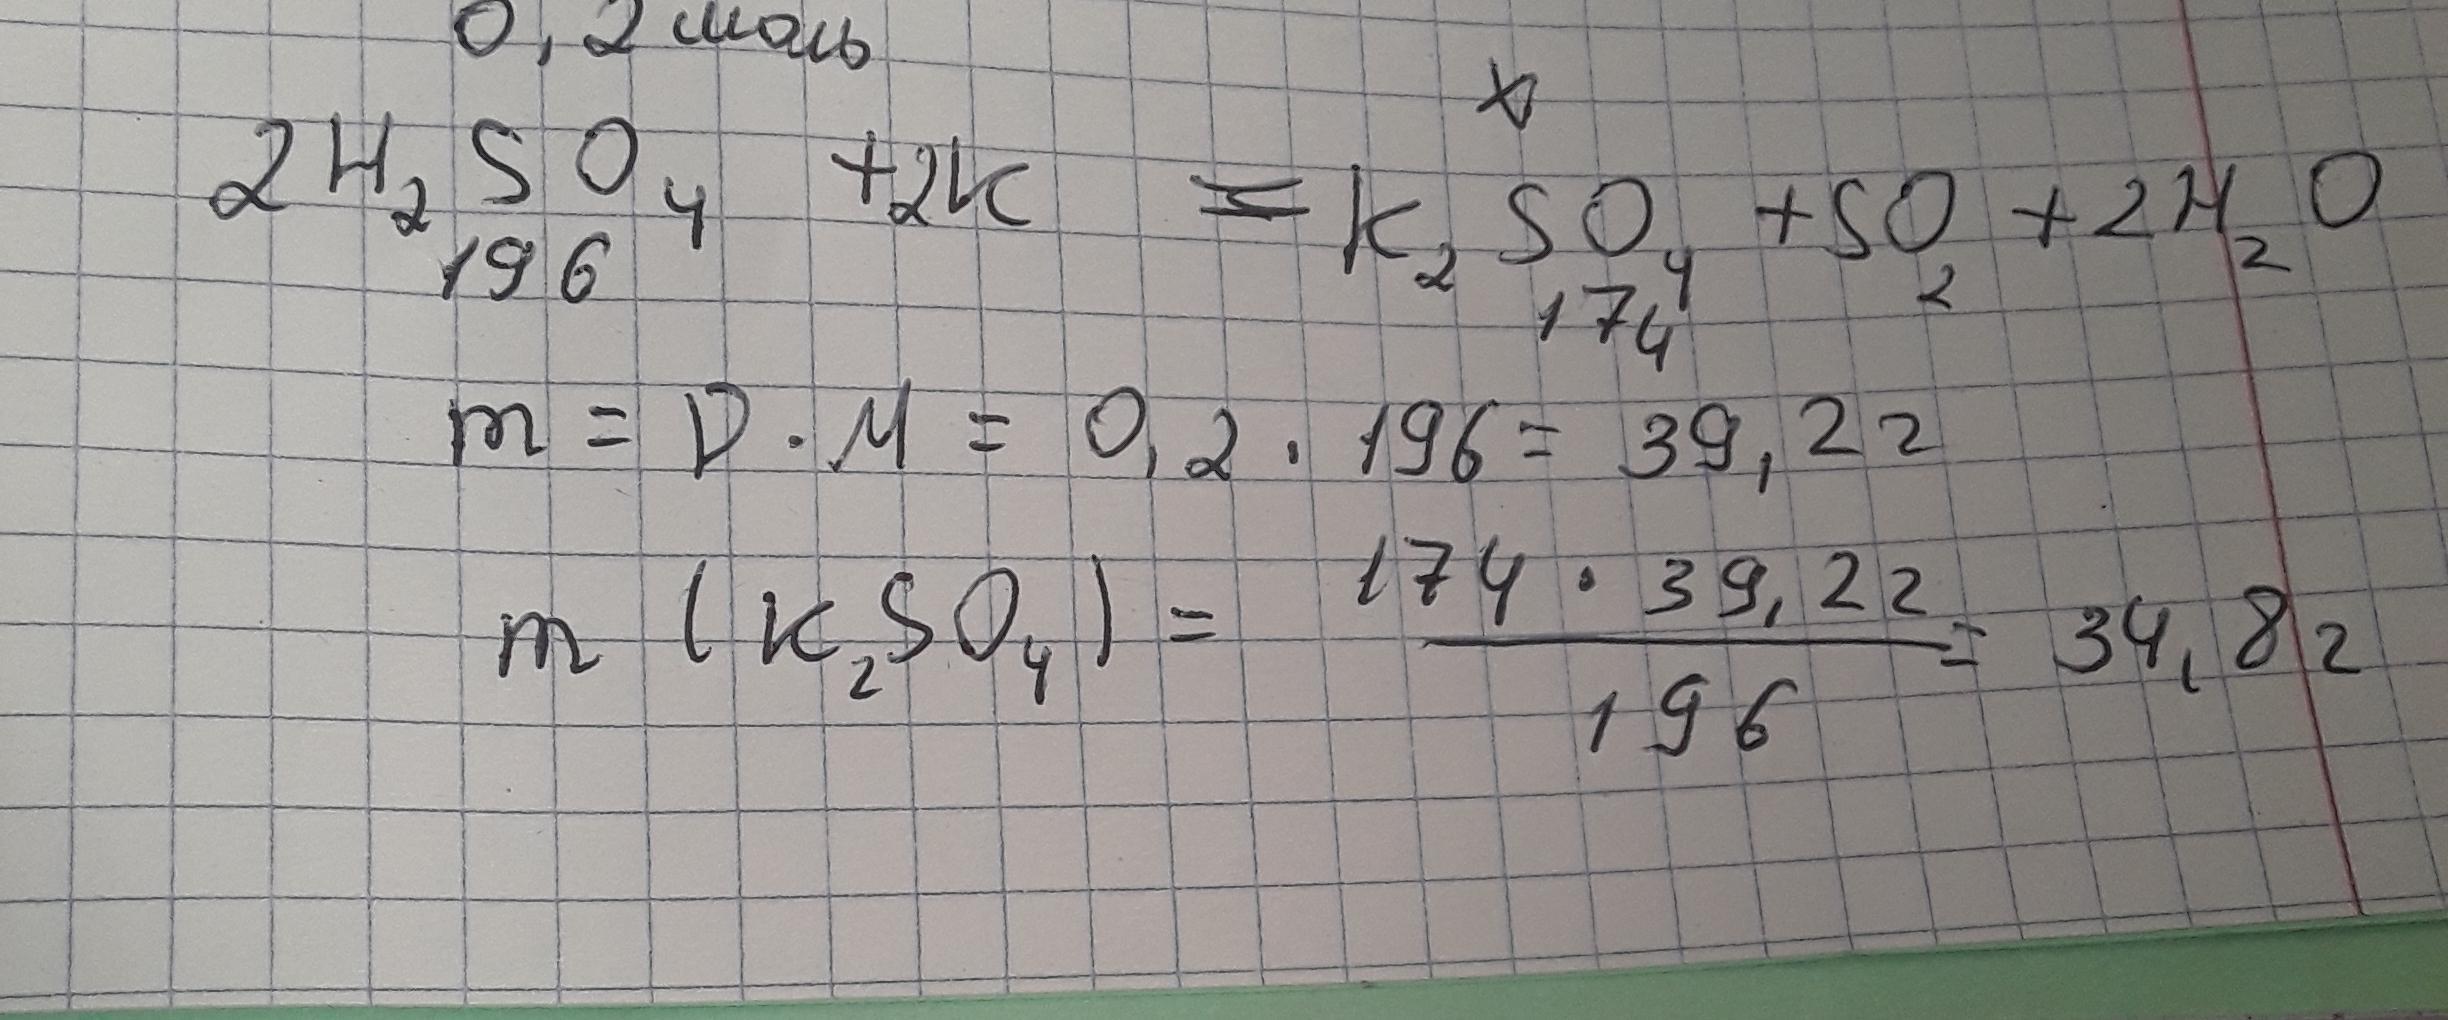 0,2 моль
x
2H₂SO₄ +2K = K₂SO₄ +SO₂ +2H₂O
196 174
m = ν · M = 0,2 · 196 = 39,2г
m (K₂SO₄) = 174 · 39,2г / 196 = 34,8г